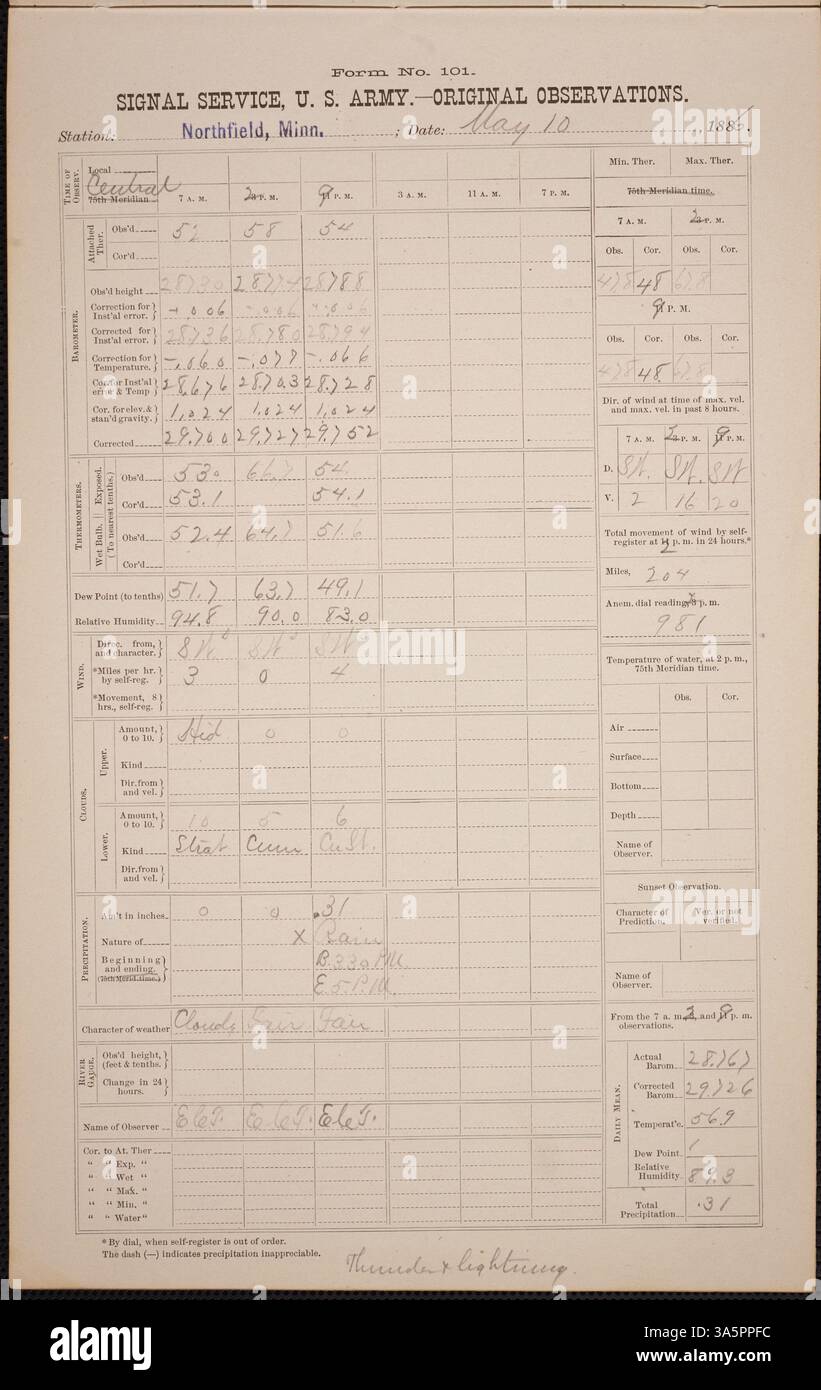 Form No. 101.
SIGNAL SERVICE, U. S. ARMY.—ORIGINAL OBSERVATIONS.
Station: Northfield, Minn. ; Date: May 10, 188
TIME OF OBSERV.
Local
Central
75th Meridian 7 A. M. P. M. P. M. 3 A. M. 11 A. M. 7 P. M.
BAROMETER.
Attached Ther.
Obs'd 52 58 54
Cor'd
Obs'd height 28.730 28.774 28.788
Correction for Inst'al error. +.006
Corrected for Inst'al error. 28.736 28.780 28.794
Correction for Temperature. -.060 -.077 -.066
Cor. for Inst'al error & Temp 28.676 28.703 28.728
Cor. for elev. & stan'd gravity. 1.024 1.024 1.024
Corrected 29.700 29.727 29.752
THERMOMETERS.
Exposed. Wet Bulb.
(To nearest tenths.)
Obs'd 53.0 66.7 54.
Cor'd 53.1 54.1
Obs'd 52.4 64.7 51.6
Cor'd
Dew Point (to tenths) 51.7 63.7 49.1
Relative Humidity 94.8 90.0 83.0
WIND.
Direc. from, and character. SW SW SW
*Miles per hr. by self-reg. 3 0 4
*Movement, 8 hrs., self-reg.
CLOUDS.
Upper.
Amount, 0 to 10. Hid 0 0
Kind
Dir. from and vel.
Lower.
Amount, 0 to 10. 10 5 6
Kind Strat Cum CuSt.
Dir. from and vel.
PRECIPITATION.
Am't in inches. 0 0 .31
Nature of X Rain
Beginning and ending. (75th Merid. time.) B. 330 P.M.
E 5 P.M.
Character of weather Cloudy Fair Fair
RIVER GAUGE.
Obs'd height, (feet & tenths.
Change in 24 hours.
Name of Observer
Cor. to At. Ther
" " Exp. "
" " Wet "
" " Max. "
" " Min. "
" " Water "
*By dial, when self-register is out of order.
The dash (—) indicates precipitation inappreciable.
Thunder & lightning.
Min. Ther. Max. Ther.
75th Meridian time.
7 A. M. P. M.
Obs. Cor. Obs. Cor.
47.8 48 67.8
P. M.
Obs. Cor. Obs. Cor.
47.8 48. 67.8
Dir. of wind at time of max. vel. and max. vel. in past 8 hours.
7 A. M. P. M. P. M.
D. SW. SW. SW
V. 2 16 20
Total movement of wind by self-register at 2 p. m. in 24 hours.*
Miles, 204
Anem. dial reading, p. m.
981
Temperature of water, at 2 p. m., 75th Meridian time.
Obs. Cor.
Air
Surface
Bottom
Depth
Name of Observer.
Sunset Observation.
Character of Prediction. Ver. or not verified.
Name of Observer.
From the 7 a. m. and p. m. observations.
DAILY MEAN.
Actual Barom. 28.767
Corrected Barom. 29.726
Temperat'e. 56.9
Dew Point.
Relative Humidity. 89.3
Total Precipitation. .31
alamy
Image ID: 3A5PPFC
www.alamy.com